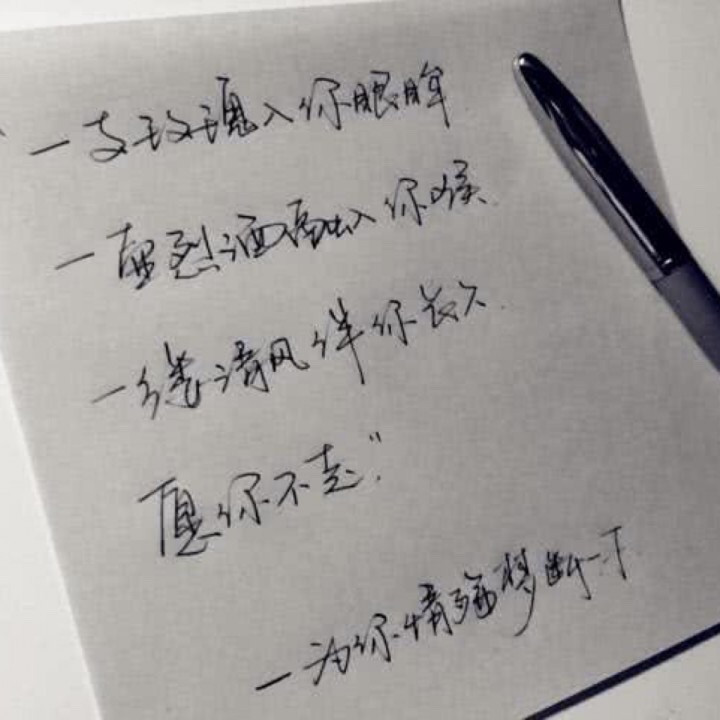 “一支玫瑰入你眼眸
一壶烈酒融入你喉
一缕清风伴你长久
愿你不走”
—为你情殇梦断